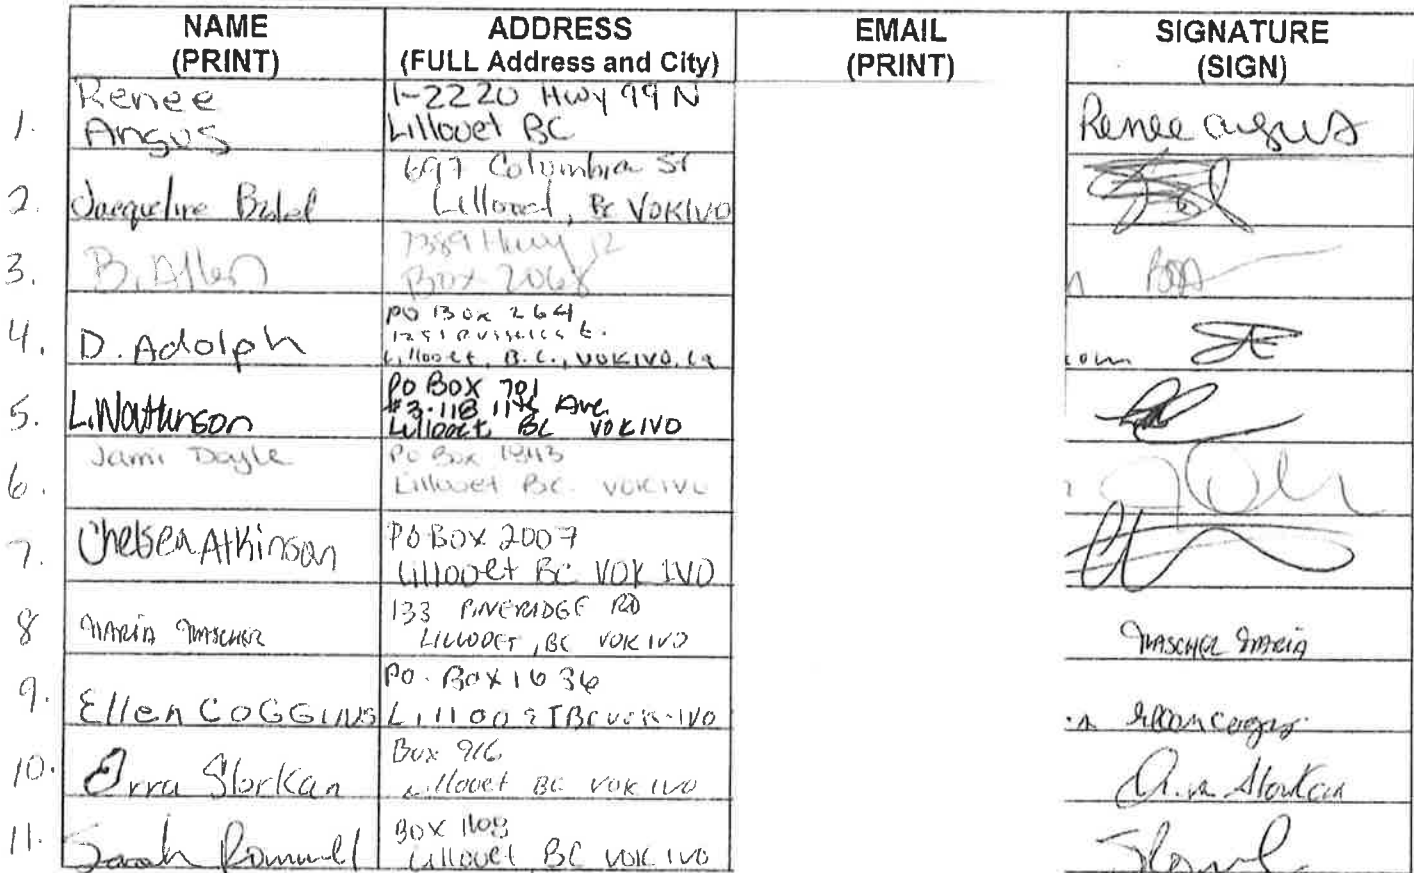 NAME (PRINT) ADDRESS (FULL Address and City) EMAIL (PRINT) SIGNATURE (SIGN)
1. Renee Angus 1-2220 Hwy 99 N Lillooet BC Renee angus
2. Jacqueline 697 Columbia St Lillooet, BC V0K1V0
3. B. Allen 7389 Hwy 12 Box 2068
4. D. Adolph PO Box 264 Lillooet, B.C., V0K1V0, Ca com
5. L. Watkinson PO BOX 701 #3-118 11th Ave Lillooet BC V0K1V0
6. Jami Doyle PO Box 1343 Lillooet BC. V0K1V0
7. Chelsea Atkinson PO BOX 2007 Lillooet BC V0K 1V0
8 MARIA MASCHER 133 PINERIDGE RD LILLOOET, BC V0K 1V0 MASCHER MARIA
9. Ellen COGGINS PO. BOX 1636 Lillooet BC V0K-1V0 Ellen Coggins
10. Storkan Box 916 Lillooet BC V0K 1V0 Storkan
11. Sarah Box 1108 Lillooet BC V0K 1V0